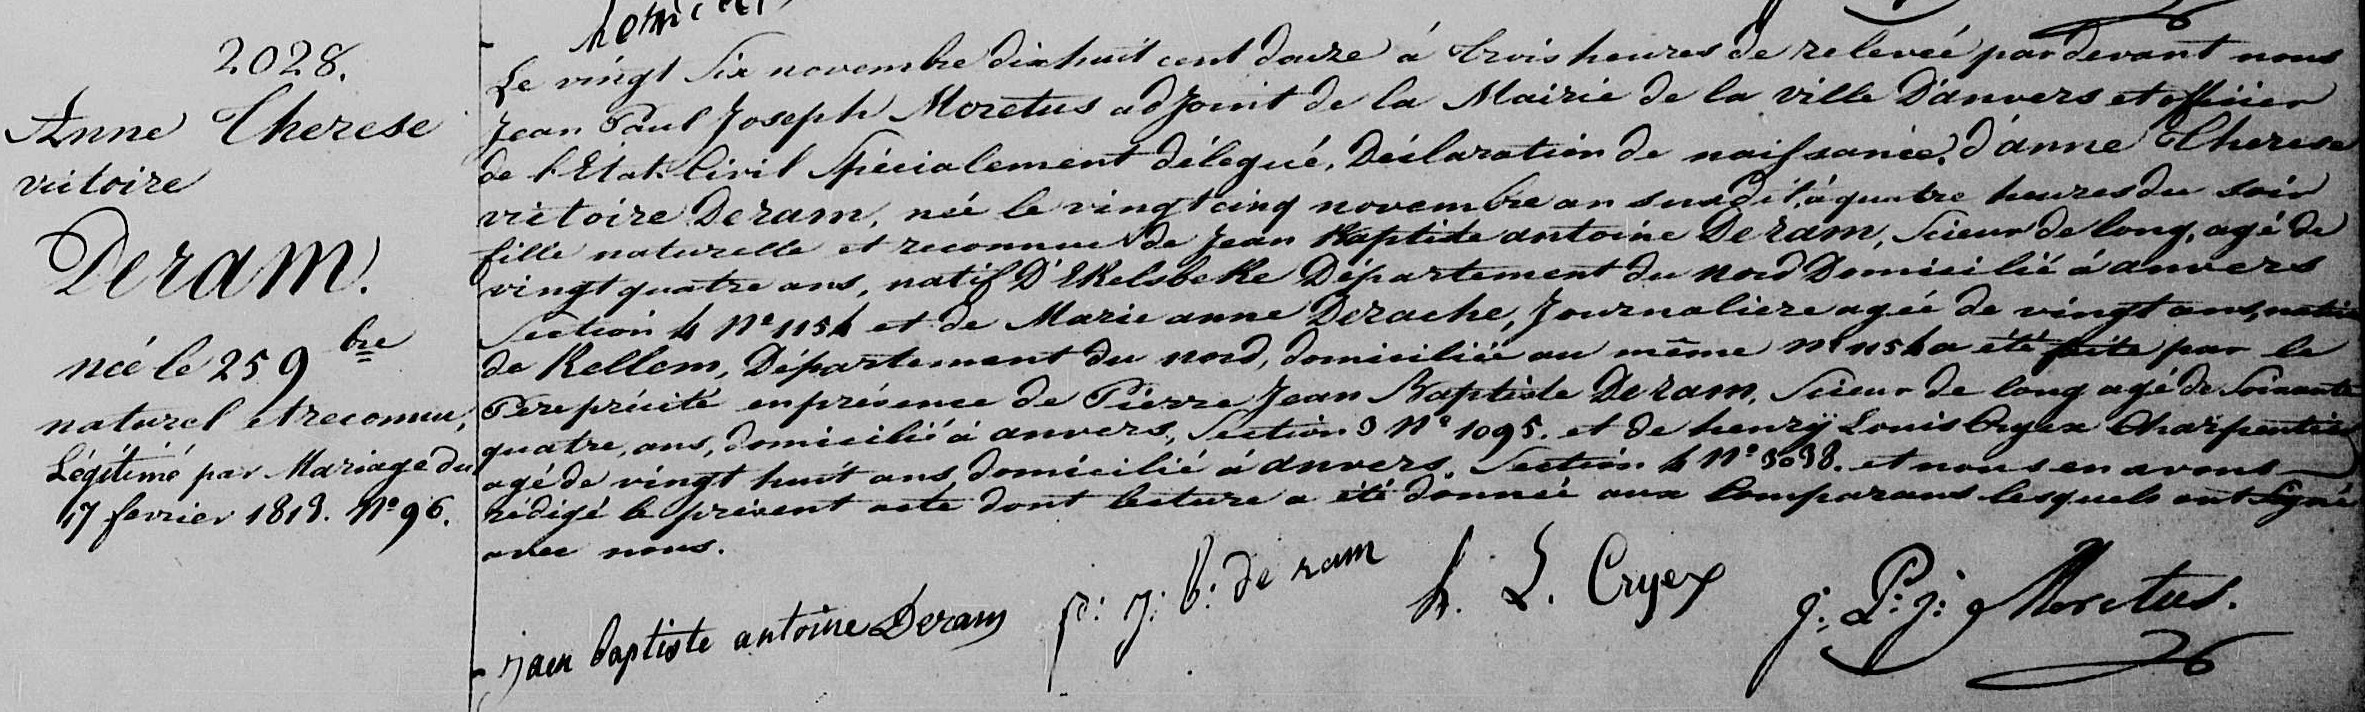 2028.
Anne Therese
victoire
Deram.
née le 25 9bre
naturel et reconnu,
Légitimé par Mariage du
17 fevrier 1813. N° 96.
Le vingt Six novembre dix huit cent douze à trois heures de relevée pardevant nous
Jean Paul Joseph Moretus adjoint de la Mairie de la ville D'anvers et officier
de l'Etat Civil Spécialement délegué, Déclaration de naissance, d'anne Therese
victoire Deram, née le vingt cinq novembre an susdit, à quatre heures du soir
fille naturelle et reconnue de Jean Baptiste antoine Deram, Scieur de long, agé de
vingt quatre ans, natif D'Ekelsbeke Département du nord Domicilié à anvers
Section 4 N° 1154 et de Marie anne Derache, Journaliere agée de vingt ans, native
de Rellem, Département du nord, domiciliée au même N° 1154 a été faite par le
Pere précité en présence de Pierre Jean Baptiste Deram, Scieur de long agé de Soixante
quatre, ans, domicilié à anvers, Section 3 N° 1095. et de henrÿ Louis Cryex Charpentier
agé de vingt huit ans, domicilié à anvers, Section 4 N° 3038. et nous en avons
rédigé le présent acte dont lecture a été donnée aux Comparans lesquels ont Signé
avec nous.
jaen baptiste antoine Deram
p: j: b: de ram
h. L. Cryex
j: P: j: Moretus.